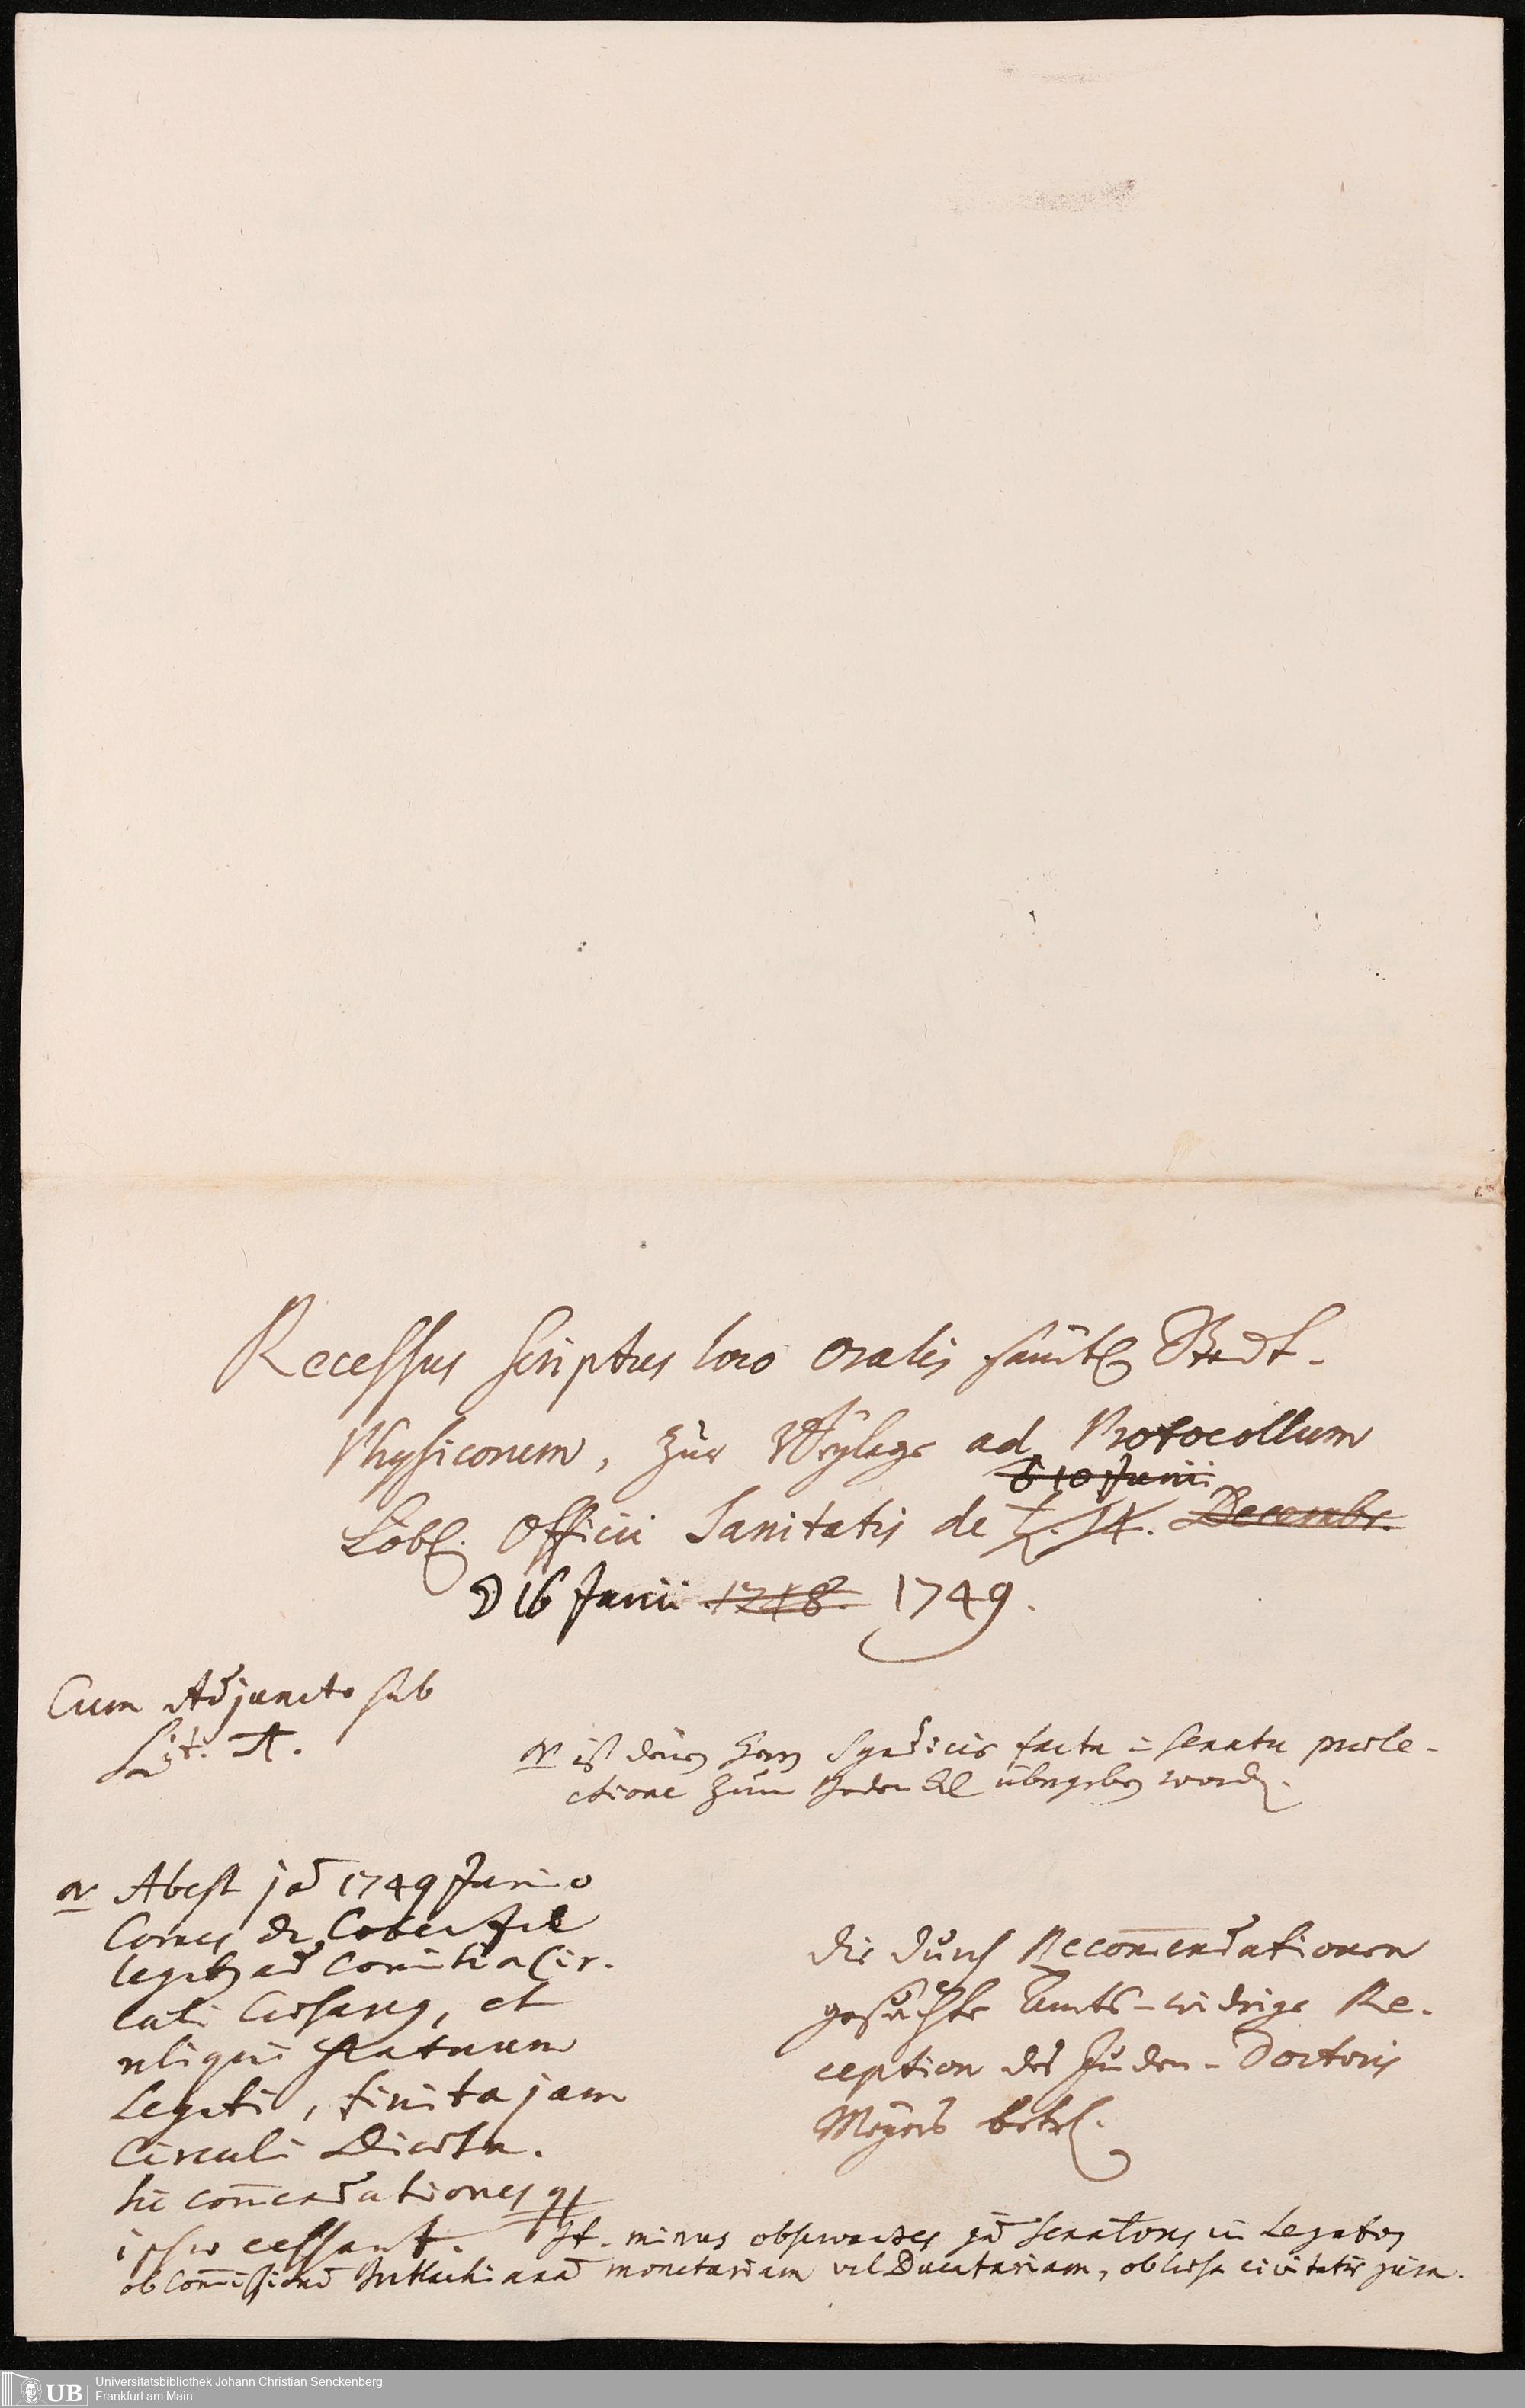 Recessus scriptus loco oralis sämtl. Stadt-
Physicorum, zur Beylage ad Protocollum
d 10 Junii
Löbl. Officii Sanitatis de Decembr.
D 16 Junii 1748. 1749.
Cum Adjuncto sub
Lit. A.
ist denen Herrn Syndicis facta in Senatu praele-
ctione zum übergeben word.
Abest jam 1749 Junio
Comes de Cobenzel
legatus ad Comitia Cir-
culi et
reliqui statuum
Legati, finita jam
Circuli Diaeta.
commendationes
ipso cessant. It. minus Senatores in Legatos
ob Commissionem monetariam vel Ducatariam, ob laesa civitatis jura.
die durch Recommendationen
gesuchte Amts-widrige Re-
ception des Juden-Doctoris
Meyers betrf.
UB
Universitätsbibliothek Johann Christian Senckenberg
Frankfurt am Main